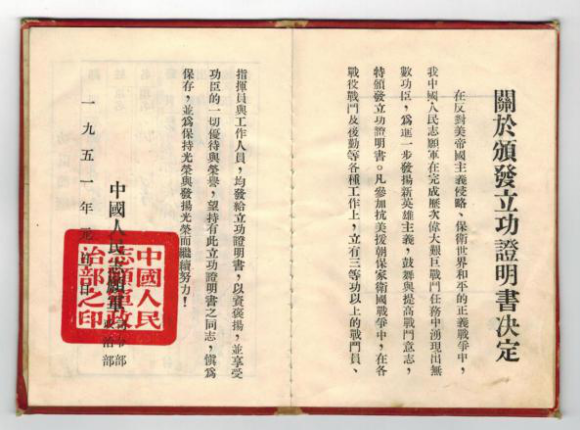 關於頒發立功證明書決定
在反對美帝國主義侵略、保衛世界和平的正義戰爭中，
我中國人民志願軍在完成歷次偉大艱巨戰鬥任務中湧現出無
數功臣，爲進一步發揚新英雄主義，鼓舞與提高戰鬥意志，
特頒發立功證明書。凡參加抗美援朝保家衛國戰爭中，在各
戰役戰鬥及後勤等各種工作上，立有三等功以上的戰鬥員、
指揮員與工作人員，均發給立功證明書，以資褒揚，並享受
功臣的一切優待與榮譽，望持有此立功證明書之同志，愼爲
保存，並爲保持光榮與發揚光榮而繼續努力！
中國人民志願軍
政治部
一九五一年元月 日
中國人民
志願軍政
治部之印